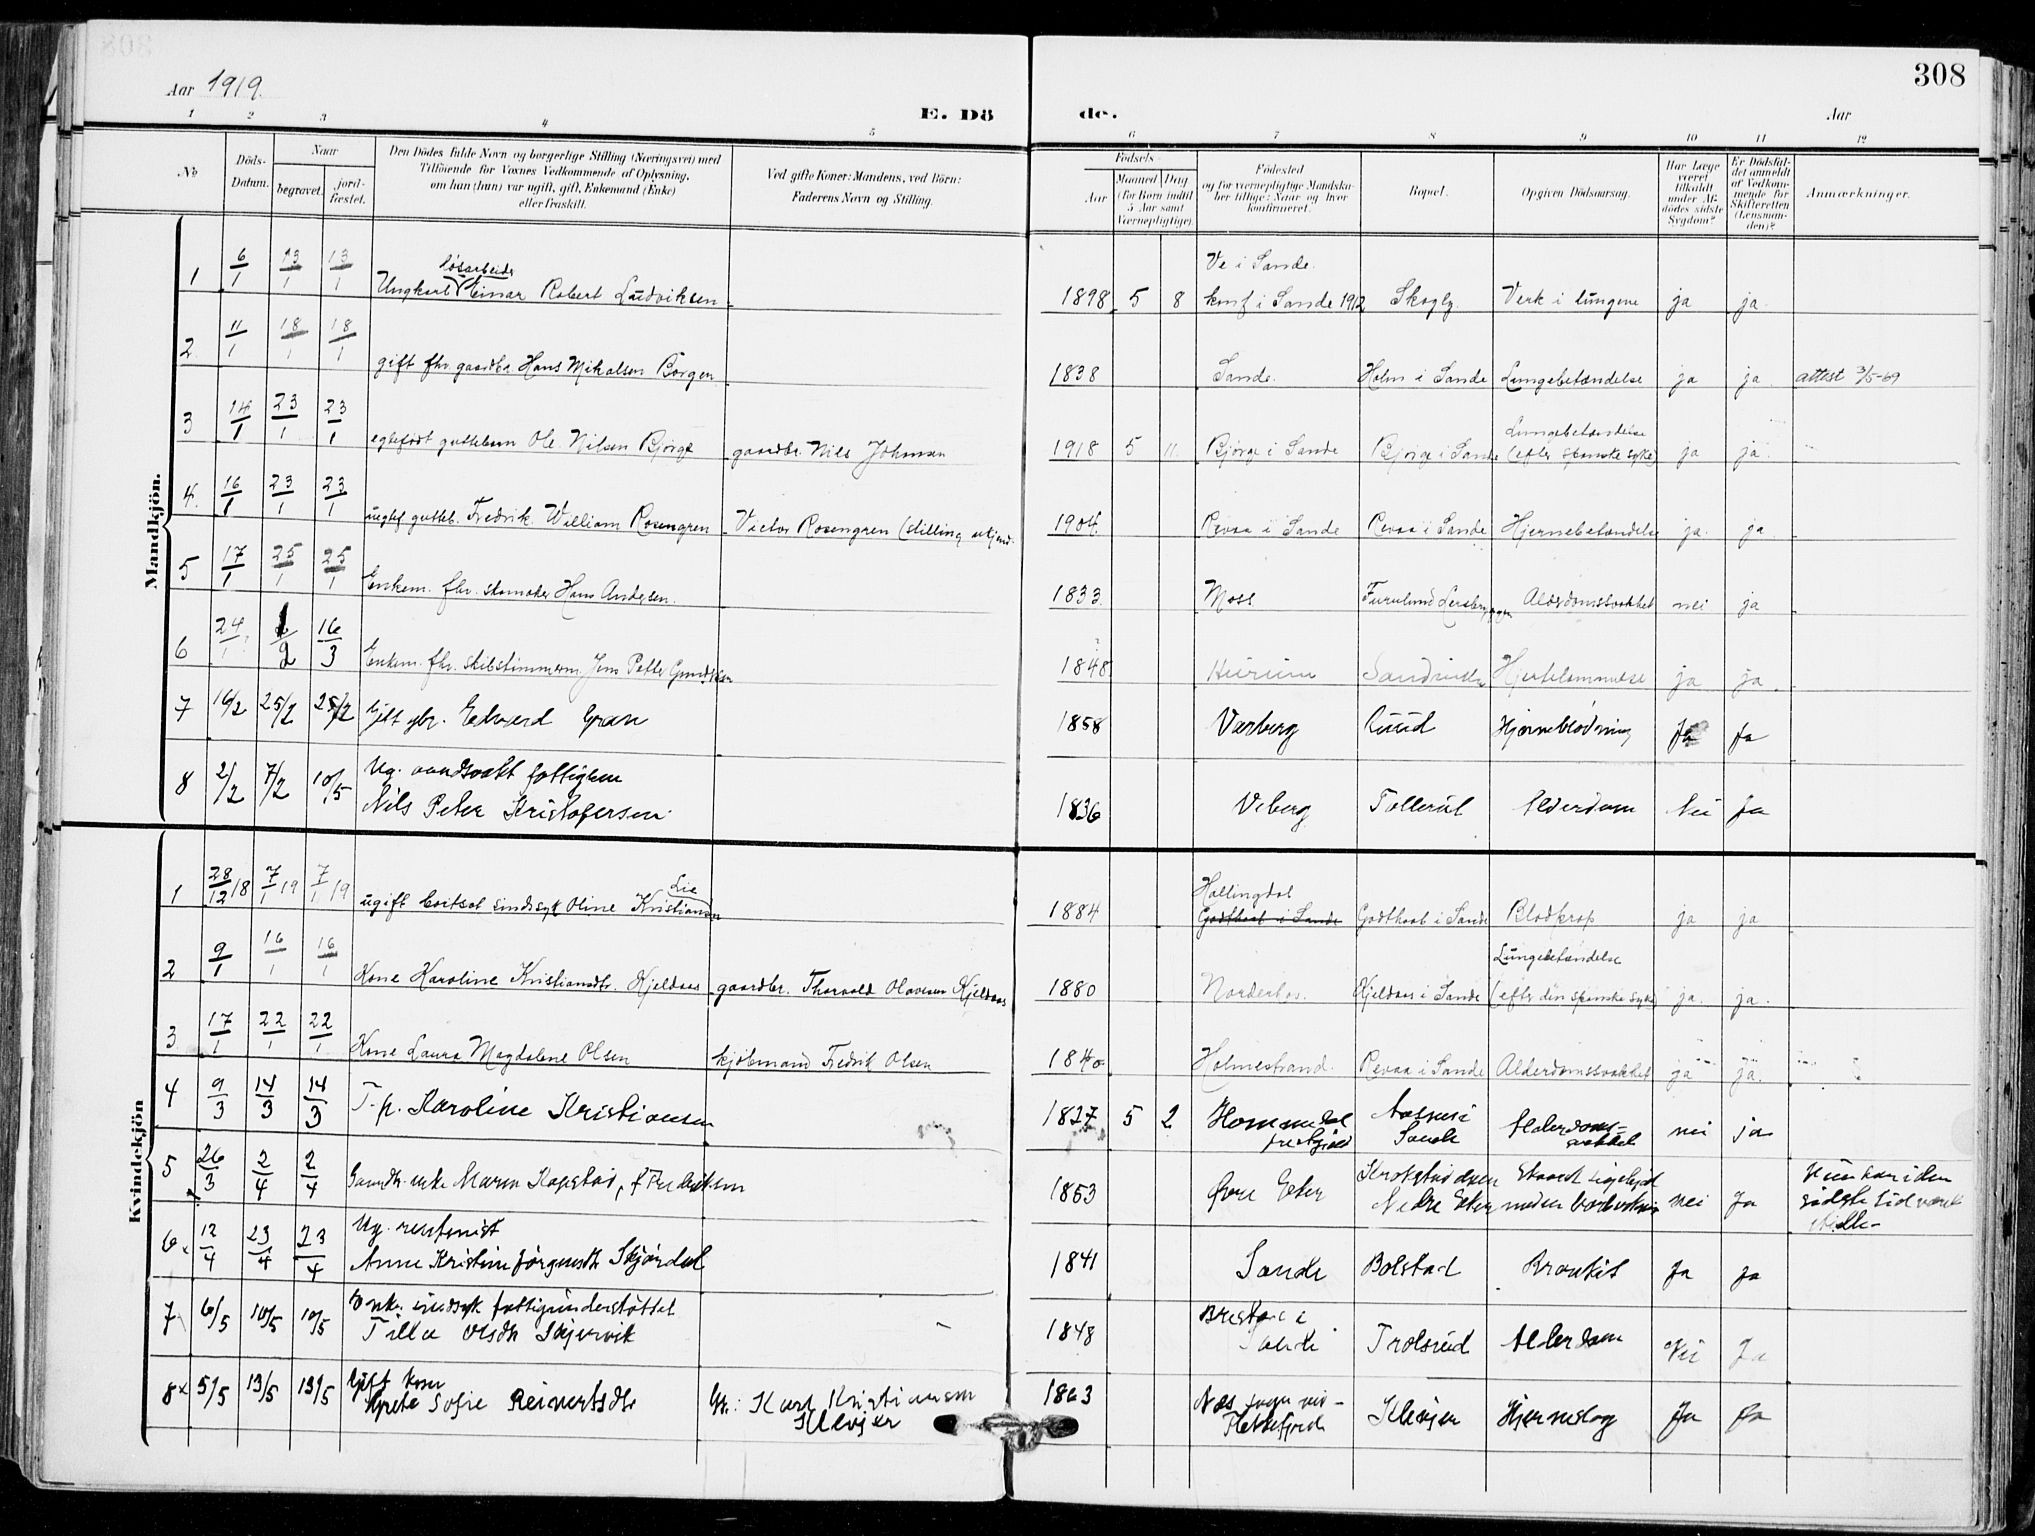 308
Aar 1919.
E. Döde.
Aar
1 2 3 4 5 6 7 8 9 10 11 12
No
Döds-Datum.
Naar
begravet.
jordfæstet.
Den Dödes fulde Navn og borgerlige Stilling (Næringsvei) med
Tilföiende for Voxnes Vedkommende af Oplysning,
om han (hun) var ugift, gift, Enkemand (Enke)
eller fraskilt.
Ved gifte Koner: Mandens, ved Börn:
Faderens Navn og Stilling.
Födsels-
Aar
Maaned Dag
(for Børn indtil
5 Aar samt
Værnepligtige)
Födested
og for værnepligtige Mandskaber tillige: Naar og hvor
konfirmeret.
Bopæl.
Opgiven Dødsaarsag.
Har Læge
været
tilkaldt
under Afdødes sidste
Sygdom?
Er Dödsfaldet anmeldt
af Vedkommende for
Skifteretten
(Lensmanden)?
Anmærkninger.
Mandkjön.
1 6/1 13/1 13/1 Ungkarl løsarbeider Einar Robert Ludviksen 1898 5 8 Ve i Sande. konf i Sande 1912 Skogly. Verk i lungene ja ja
2. 11/1 18/1 18/1 gift fhv. gaardbr. Hans Mikalsen Borgen 1838 Sande. Holm i Sande Lungebetændelse ja ja attest 3/5-69
3 14/1 23/1 23/1 egtefødt guttebarn Ole Nilsen Bjørge gaardbr. Nils Johnsen 1918 5 11. Bjørge i Sande Bjørge i Sande Lungebetændelse (efter spanske syke) ja ja
4. 16/1 23/1 23/1 uegtef. gutteb. Fredrik William Rosengren Victor Rosengren (stilling ukjend. 1904 Revaa i Sande Revaa i Sande Hjernebetændelse ja. ja.
5 17/1 25/1 25/1 Enkem. fhv. skomaker Hans Andersen. 1833 Moss Furulund Alderdomssvakhet nei ja
6 24/1 1/2 16/3 Enkem. fhv. skibstømmerm. Jens Petter 1848 Hurum Hjertelammelse ja ja.
7 16/2 25/2 25/2 Gift gbr. Edvard Gran 1858 Varberg Ruud Hjerneblødning Ja Ja
8 2/2 7/2 10/5 Ug. aandssvakt fattiglem
Nils Peter Kristofersen. 1836 Veberg Tollerud Alderdom Nei Ja
Kvindekjön
1 28/12 18 7/1 19 7/1 19 ugift bortsat sindssyk Oline Kristiansen Lie 1884 Hallingdal Godthaab i Sande Godthaab i Sande Blodprop ja ja
2 9/1 16/1 16/1 Kone Karoline Kristiansdtr. Kjeldaas gaardbr. Thorvald Olavesen Kjeldaas 1880 Norderhov. Kjeldaas i Sande Lungebetændelse (efter den spanske syke) ja. ja.
3 17/1 22/1 22/1 Kone Laura Magdalene Olsen kjøbmand Fredrik Olsen 1840 Holmestrand. Revaa i Sande Alderdomssvakhet ja ja.
4 9/3 14/3 14/3 T. p. Karoline Kristiansen 1827 5 2 Hommedal Sande Alderdomssvakhet nei ja
5 26/3 2/4 2/4 Gaardbr. enke Maren Kopstad, f Fredriksen 1853 Øvre Eker Nedre Eker nei Ja Hun har i den sidste tid været
6 12/4 23/4 23/4 Ug. rentenist
Anne Kristine Jørgensdtr Skjørdal 1841 Sande Bolstad Bronkit Ja Ja
7 6/5 10/5 10/5 Enke. sindsyk fattigunderstøttet
Tilla Olsdtr Skjervik 1848 Trolsrud Alderdom Nei Ja
8 5/5 13/5 13/5 Gift kone
Grete Sofie Reinertsdtr Gbr.: Karl Kristiansen Klevjer 1863 Nes sogn ved Flekkefjord Klevjer Hjerneslag Ja Ja